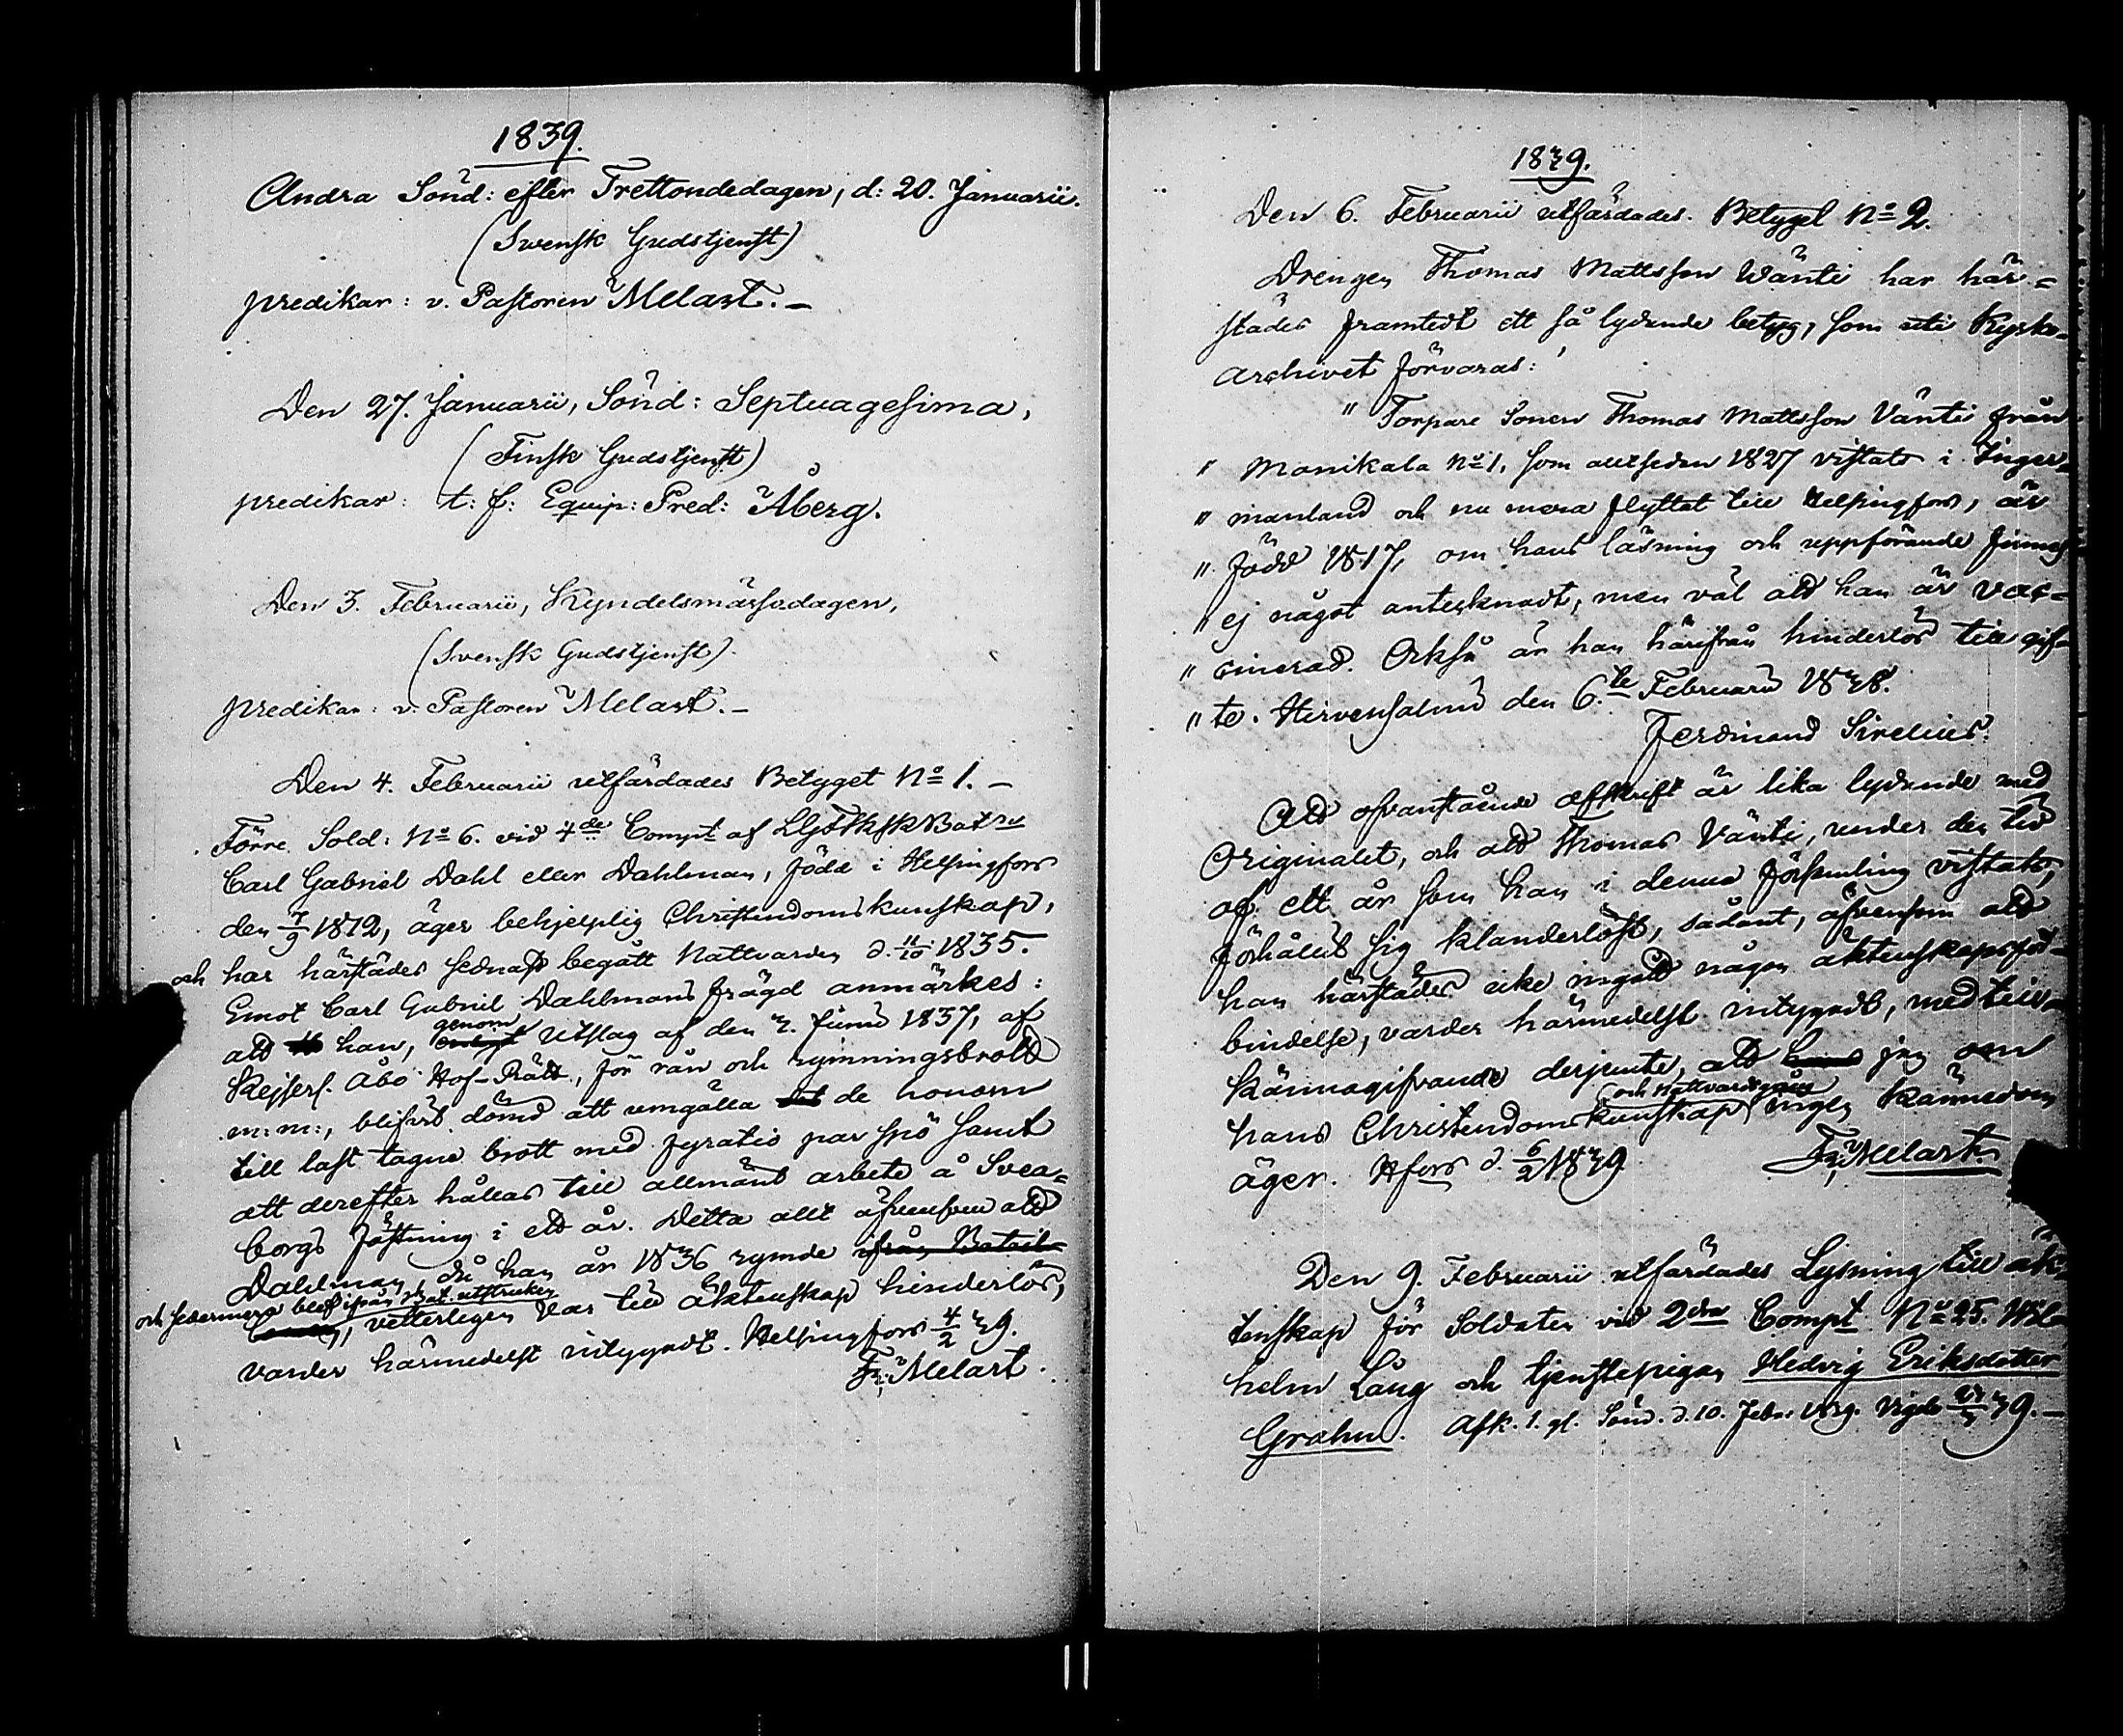 1839.
Andra Sönd: efter Trettondedagen, d: 20. Januarii.
(Swensk Gudstjenst)
predikar: v. Pastoren Melart. –
Den 27. Januarii, Sönd: Septuagesima,
(Finsk Gudstjenst)
predikar: t: f: Equip: Pred: Åberg.
Den 3. Februarii, Kyndelsmässodagen,
(Svensk Gudstjenst)
predikar: v: Pastoren Melart. –
Den 4. Februarii utfärdades Betyget No 1. –
Förre Sold: No 6. vid 4de Compt af
Carl Gabriel Dahl eller Dahlman, född i Helsingfors
den 7/9 1812, äger behjelplig Christendomskunskap,
och har härstädes sednast begått Nattvarden d. 11/10 1835.
Emot Carl Gabriel Dahlmans frägd anmärkes:
att han, genom Utslag af den 3. Junii 1837, af
Kejserl. Åbo Hof-Rätt, för rån och rymningsbrott
m: m:, blifvit dömd att umgälla de honom
till last tagne brott med fyratio par spö samt
att derefter hållas till allmänt arbete å Svea=
borgs fästning i ett år. Detta allt äfvensom att
Dahlman, då han år 1836 rymde ifrån Batail-
och sedermera blef ifrån Bat. utstruken
, vetterligen var till äktenskap hinderlös,
varder härmedelst intygadt. Helsingfors 4/2 39.
Fr: Melart.
1839.
Den 6. Februarii utfärdades. Betyget No 2.
Drengen Thomas Mattsson Wänti har här=
städes framtedt ett så lydande betyg, som uti Kyrko-
archivet förvaras:
" Torpare Sonen Thomas Mattsson Vänti från
" Monikala No 1, som alltsedan 1827 vistats i Inger=
" manland och nu mera flyttat till Helsingfors, är
" född 1817, om hans läsning och uppförande finnes
" ej något antecknadt, men väl att han är vac=
" cinerad. Också är han härifrån hinderlös till gif=
" te. Hirvensalmi den 6te Februarii 1838.
Ferdinand Sirelius.
Att ofvanstående afskrift är lika lydande med
Originalet, och att Thomas Vänti, under den tid
af ett år som han i denna församling vistats,
förhållit sig klanderlöst, sådant, äfvensom att
han härstädes icke ingått någon äktenskapsför=
bindelse, varder härmedelst intygadt, med till=
kännagifvande derjemte, att jag om
hans Christendomskunskap och Nattvardsgång ingen kännedom
äger. Hfors d. 6/2 1839
Fr: Melart.
Den 9. Februarii utfärdades Lysning till äk=
tenskap för Soldaten vid 2dra Compt No 25. Wil=
helm Lång och tjenstepigan Hedvig Eriksdotter
Grahn. Afk. 1. g. Sönd. d. 10. Febr: 1839. Vigde 39. –